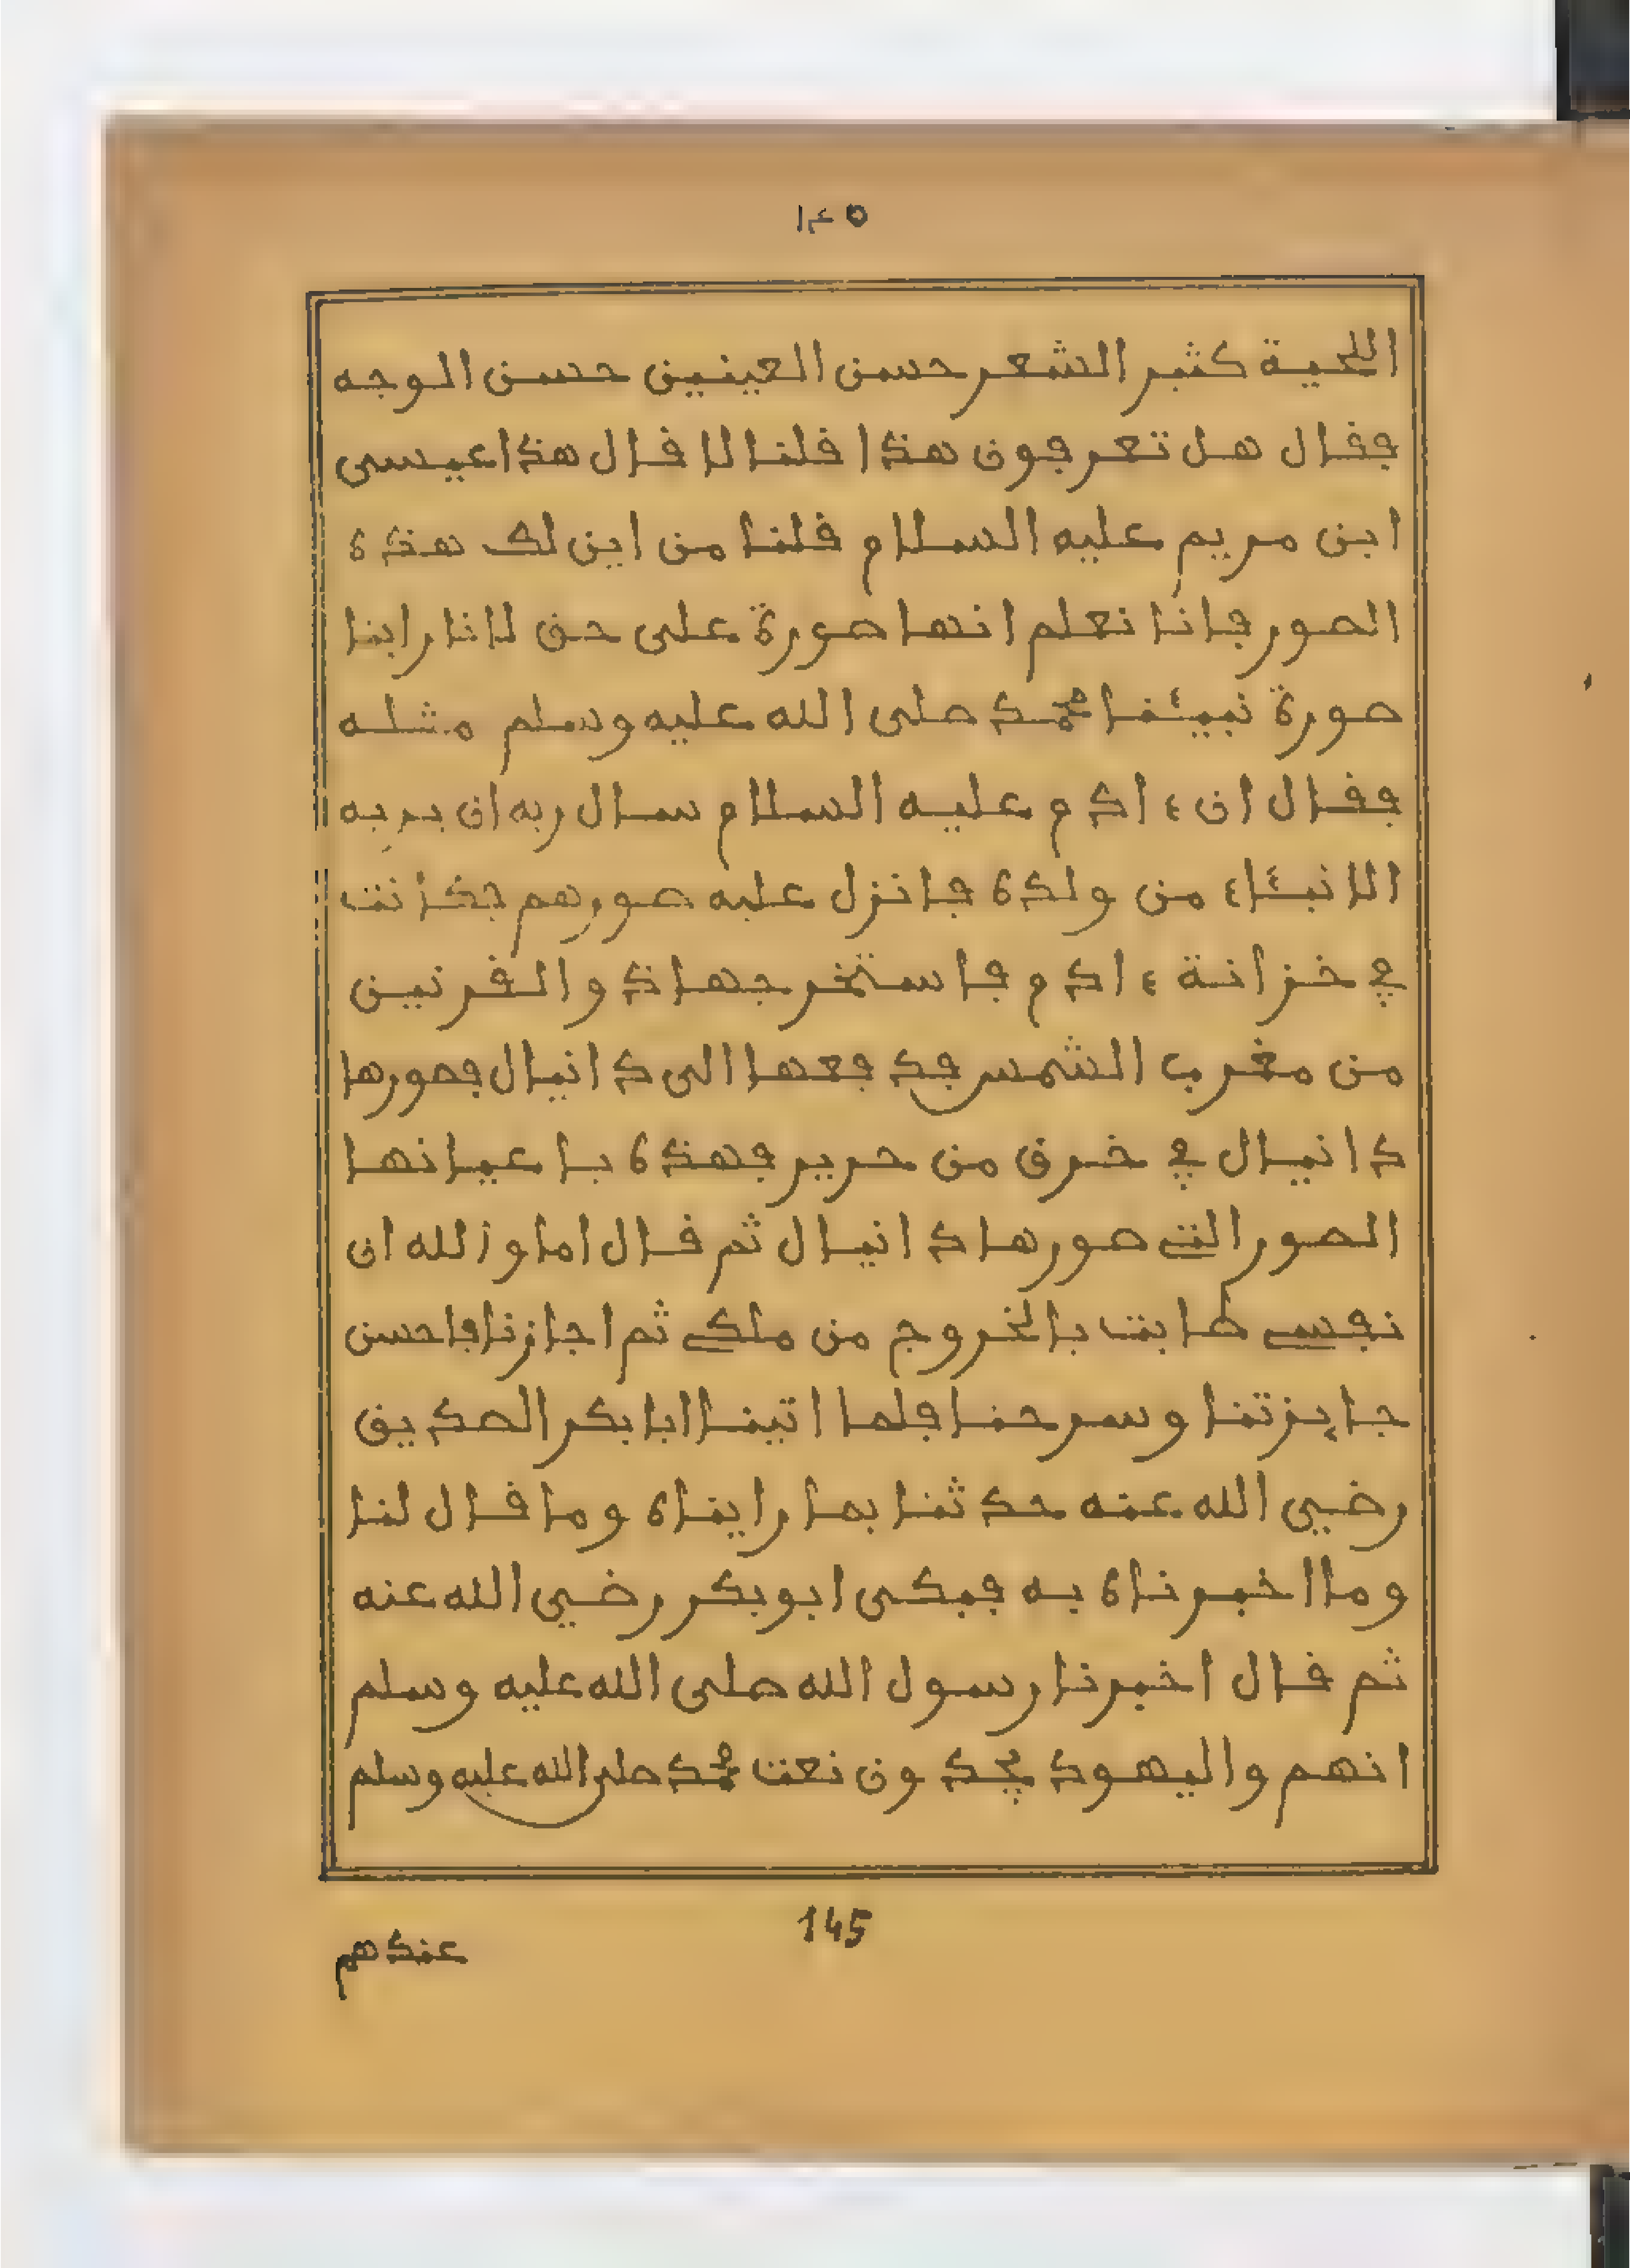 ١٤٥
اللحية كثير الشعر حسن العينين حسن الوجه
فقال هل تعرفون هذا قلنا لا قال هذا عيسى
ابن مريم عليه السلام قلنا من اين لك هذه
الصور فانا نعلم انها صورة على حق لانا راينا
صورة نبيئنا محمد صلى الله عليه وسلم مثله
فقال ان ءادم عليه السلام سال ربه ان يريه
الانبئاء من ولده فانزل عليه صورهم فكانت
في خزانة ءادم فاستخرجها ذو القرنين
من مغرب الشمس فدفعها الى دانيال فصورها
دانيال في خرق من حرير فهذه باعيانها
الصور التي صورها دانيال ثم قال اما والله ان
نفسي طابت بالخروج من ملكي ثم اجازنا فاحسن
جايزتنا وسرحنا فلما اتينا ابا بكر الصديق
رضي الله عنه حدثنا بما رايناه وما قال لنا
وما اخبرناه به فبكى ابو بكر رضي الله عنه
ثم قال اخبرنا رسول الله صلى الله عليه وسلم
انهم واليهود يجدون نعت محمد صلى الله عليه وسلم
145
عندهم